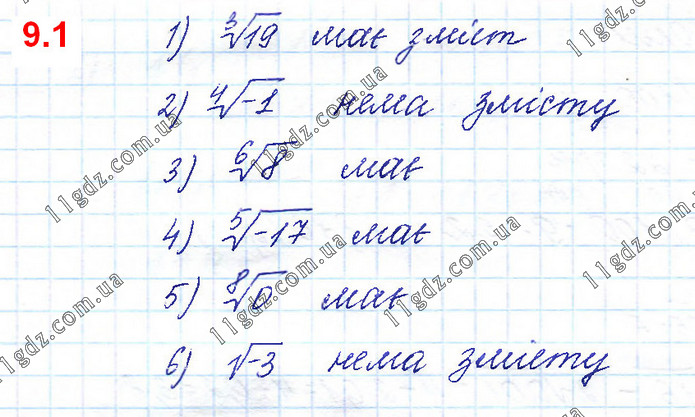 9.1
1) ∛19 має зміст
2) ∜-1 нема змісту
3) ⁶√8 має
4) ⁵√-17 має
5) ⁸√0 має
6) √-3 нема змісту
11gdz.com.ua
11gdz.com.ua
11gdz.com.ua
11gdz.com.ua
11gdz.com.ua
11gdz.com.ua
11gdz.com.ua